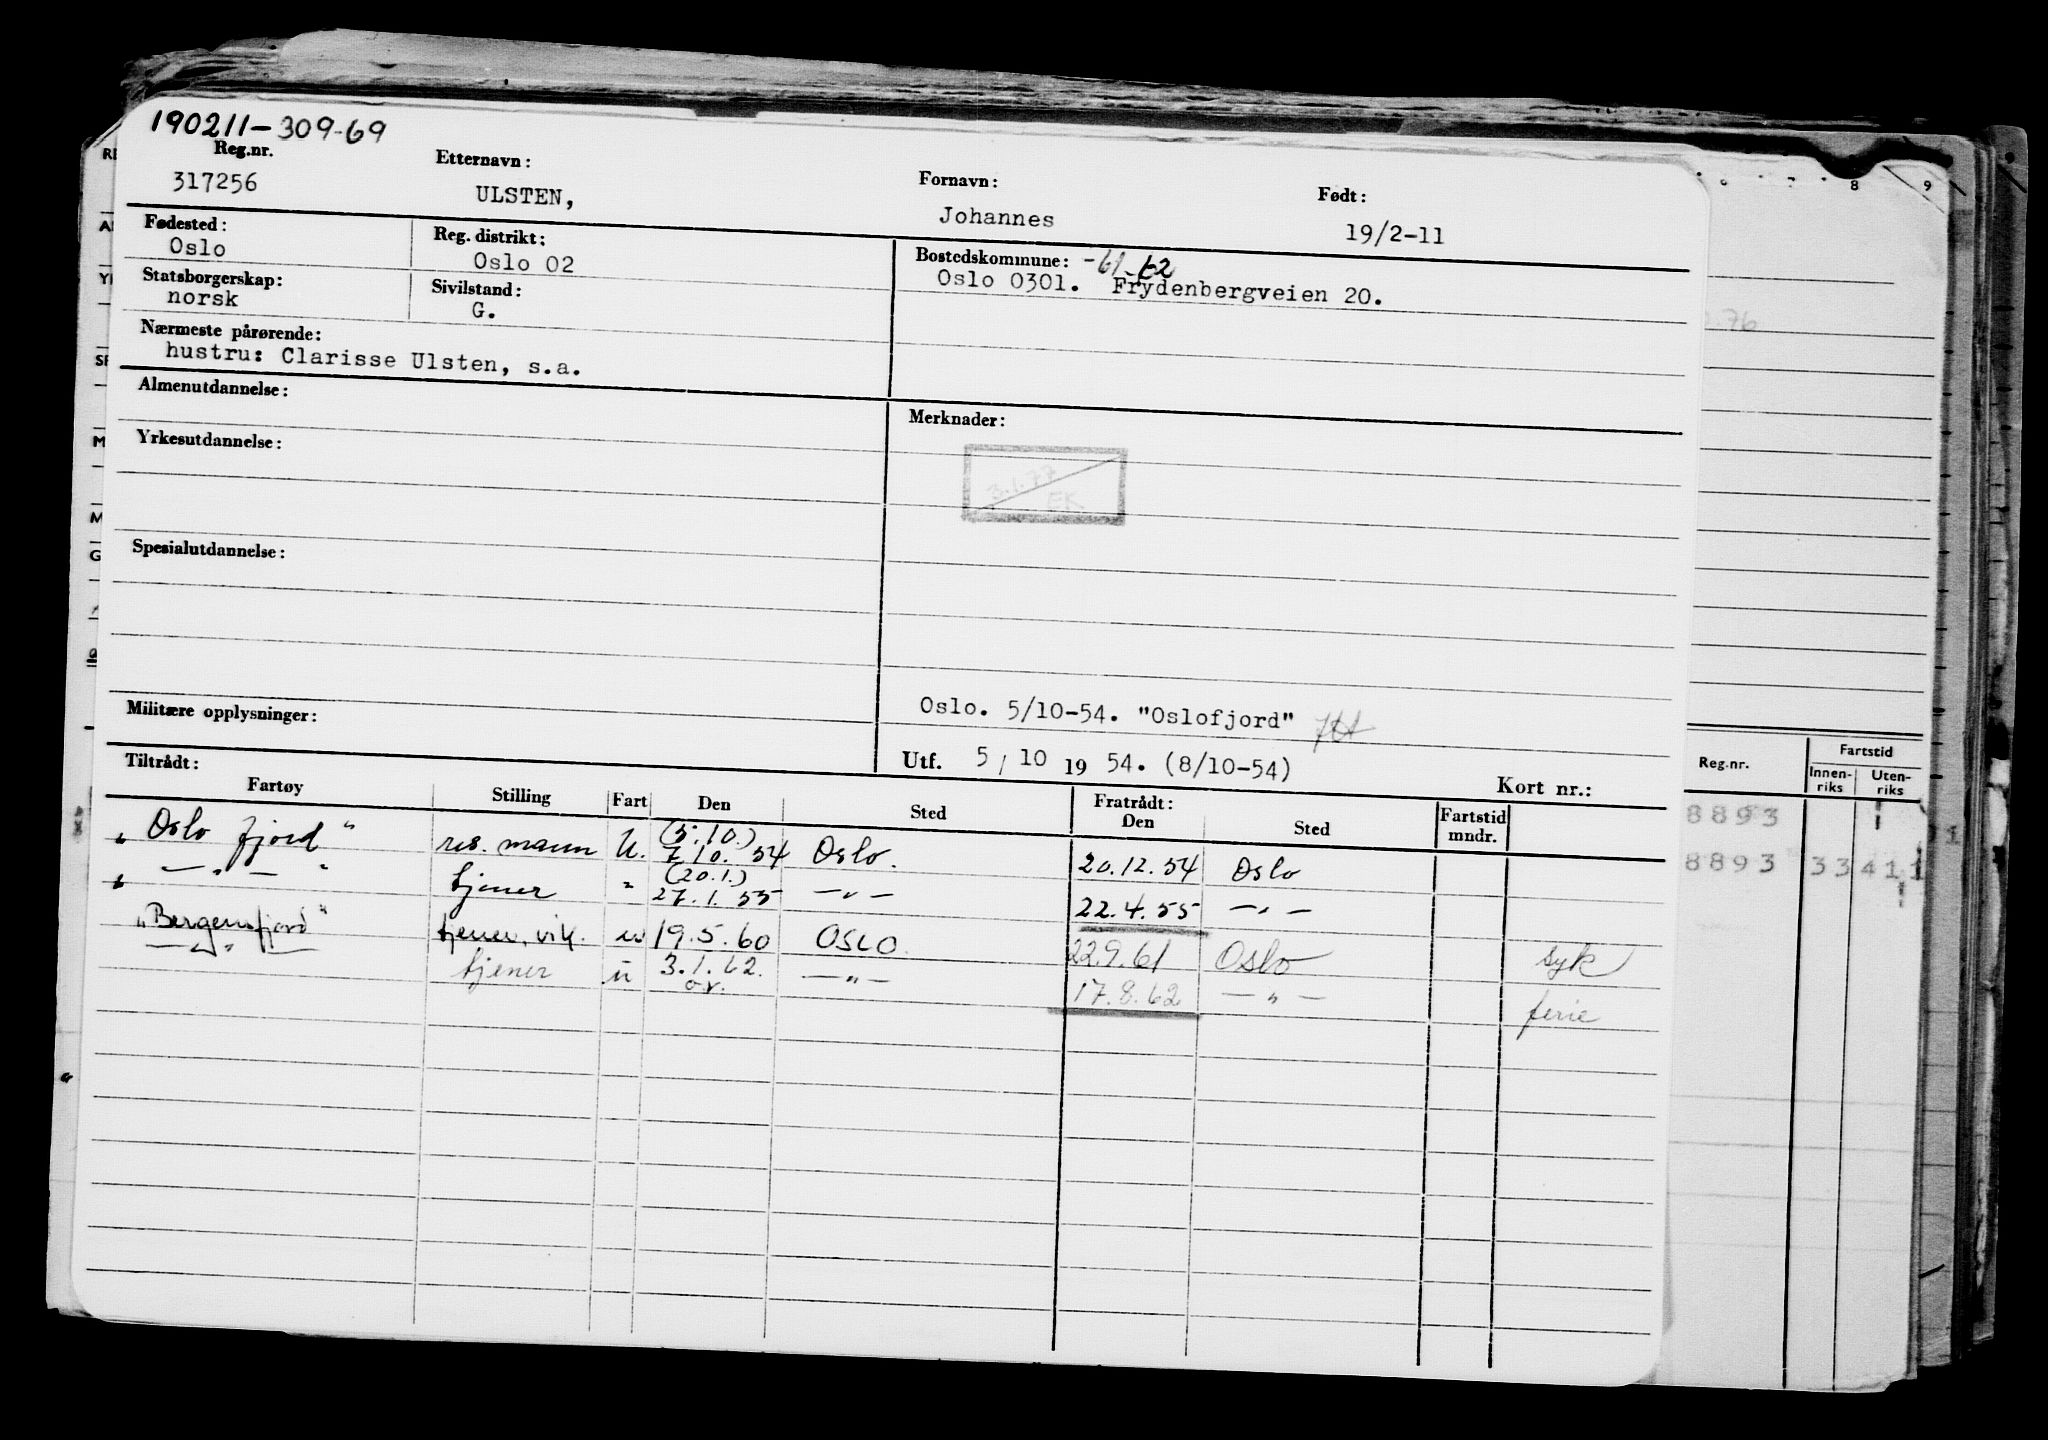 190211-309-69
Reg.nr. Etternavn: Fornavn: Født:
317256 ULSTEN, Johannes 19/2-11
Fødested: Reg. distrikt: Bostedskommune: -61-62
Oslo Oslo 02 Oslo 0301. Frydenbergveien 20.
Statsborgerskap: Sivilstand:
norsk G.
Nærmeste pårørende:
hustru: Clarisse Ulsten, s.a.
Almenutdannelse: Merknader:
Yrkesutdannelse:
3.1.77
EK
Spesialutdannelse:
Militære opplysninger: Oslo. 5/10-54. "Oslofjord"
Utf. 5/10 1954. (8/10-54)
Tiltrådt: Kort nr.:
Fartøy Stilling Fart Den Sted Fratrådt: Den Sted Fartstid mndr.
"Oslofjord" res. mann U. (5.10.) 7.10.54 Oslo. 20.12.54 Oslo
" — " — " tjener " (20.1.) 27.1.55 — " — 22.4.55 — " —
"Bergensfjord" tjener, vik. u 19.5.60 OSLO. 22.9.61 Oslo syk
— " — tjener u 3.1.62. o.r. — " — 17.8.62 — " — ferie
Reg.nr. Fartstid
Innen-riks Uten-riks
8893
8893 33 411
8 9